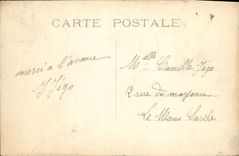 CARTE POSTALE
merci à l'avance
J Jégo
Melle Camille Jégo
2 rue de mayence
Le Mans Sarthe